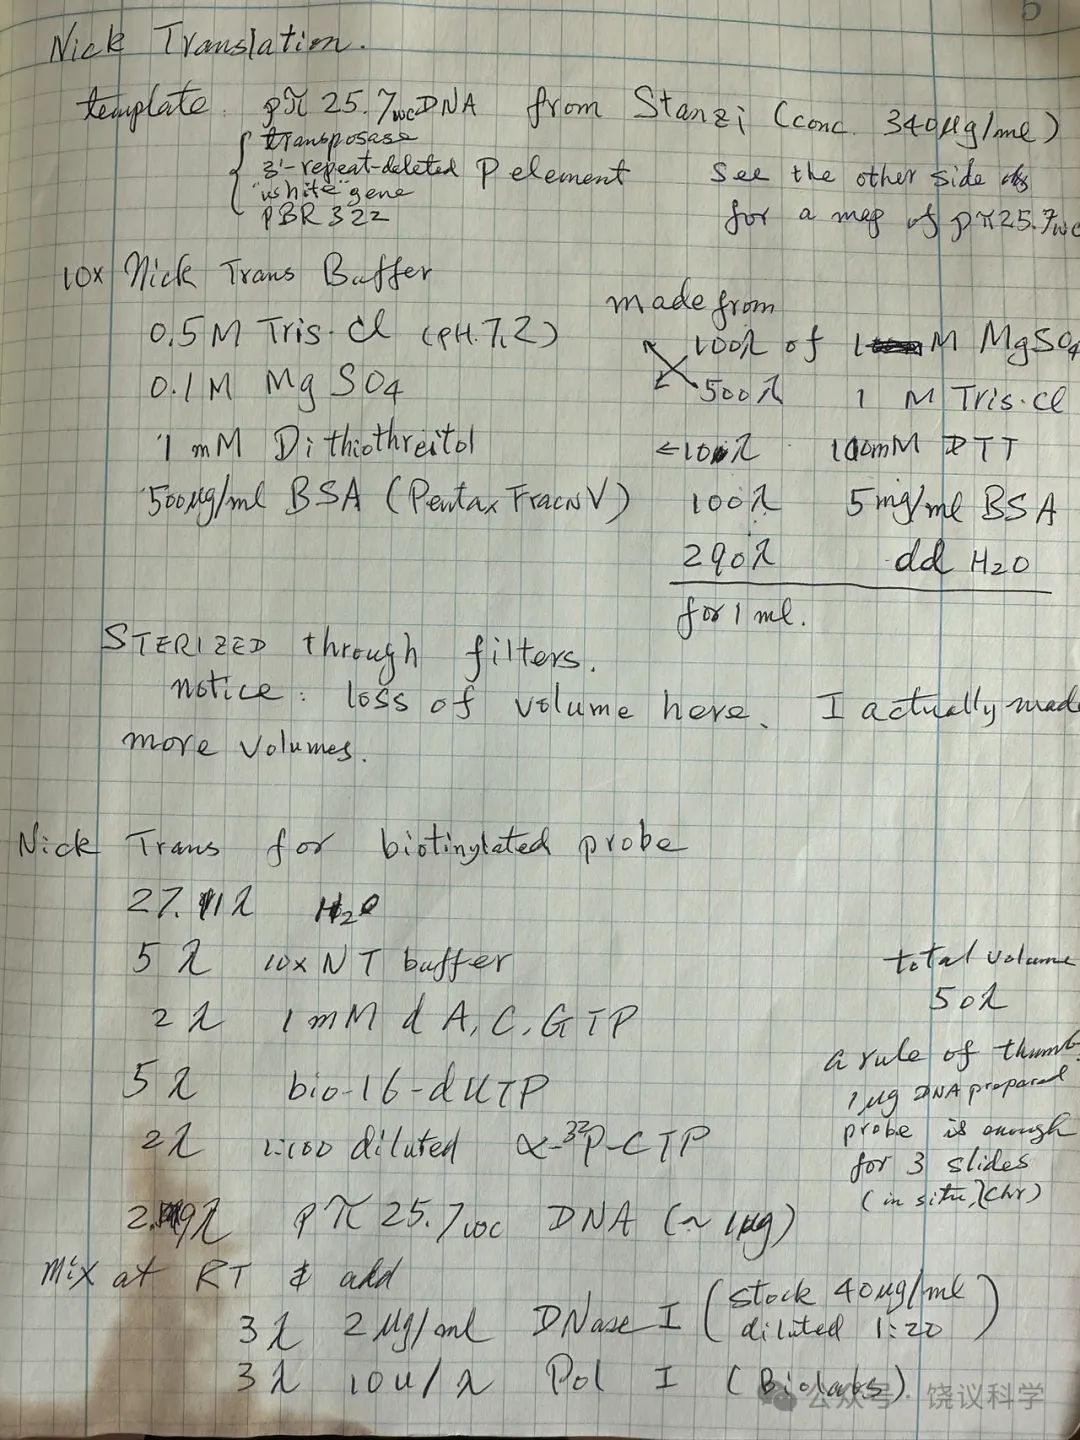 5
Nick Translation.
template: pπ 25.7wc DNA from Stanzi (conc. 340μg/ml)
transposase
3'-repeat-deleted P element
"white" gene
PBR 322
See the other side
for a map of pπ25.7wc
10x Nick Trans Buffer
0.5M Tris·Cl (pH 7.2)
0.1M MgSO4
1 mM Dithiothreitol
500μg/ml BSA (Pentax Fracn V)
made from
100λ of 1 M MgSO4
500λ 1 M Tris·Cl
←10λ 100mM DTT
100λ 5mg/ml BSA
290λ dd H2O
for 1 ml.
STERIZED through filters.
notice: loss of volume here. I actually made
more volumes.
Nick Trans for biotinylated probe
27.1λ H2O
5λ 10x NT buffer
2λ 1mM d A,C,GTP
5λ bio-16-dUTP
2λ 1:100 diluted α-32P-CTP
2.9λ pπ 25.7wc DNA (~1μg)
total volume
50λ
a rule of thumb
1μg DNA prepared
probe is enough
for 3 slides
(in situ, Chr)
Mix at RT & add
3λ 2μg/ml DNase I (stock 40μg/ml
diluted 1:20)
3λ 10u/λ Pol I (Biolabs)
公众号·饶议科学